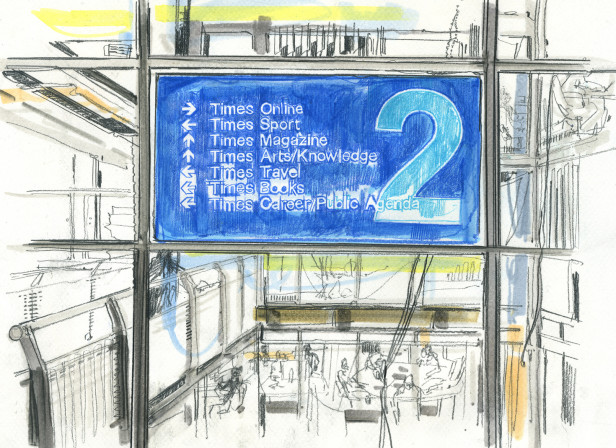 → Times Online
← Times Sport
↑ Times Magazine
↑ Times Arts/Knowledge
← Times Travel
← Times Books
← Times Career/Public Agenda
2